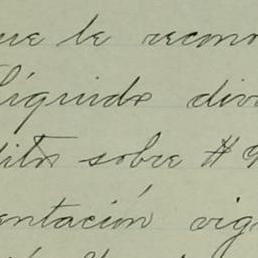 que le recono
líquido div
ditos sobre # 9
entación vig